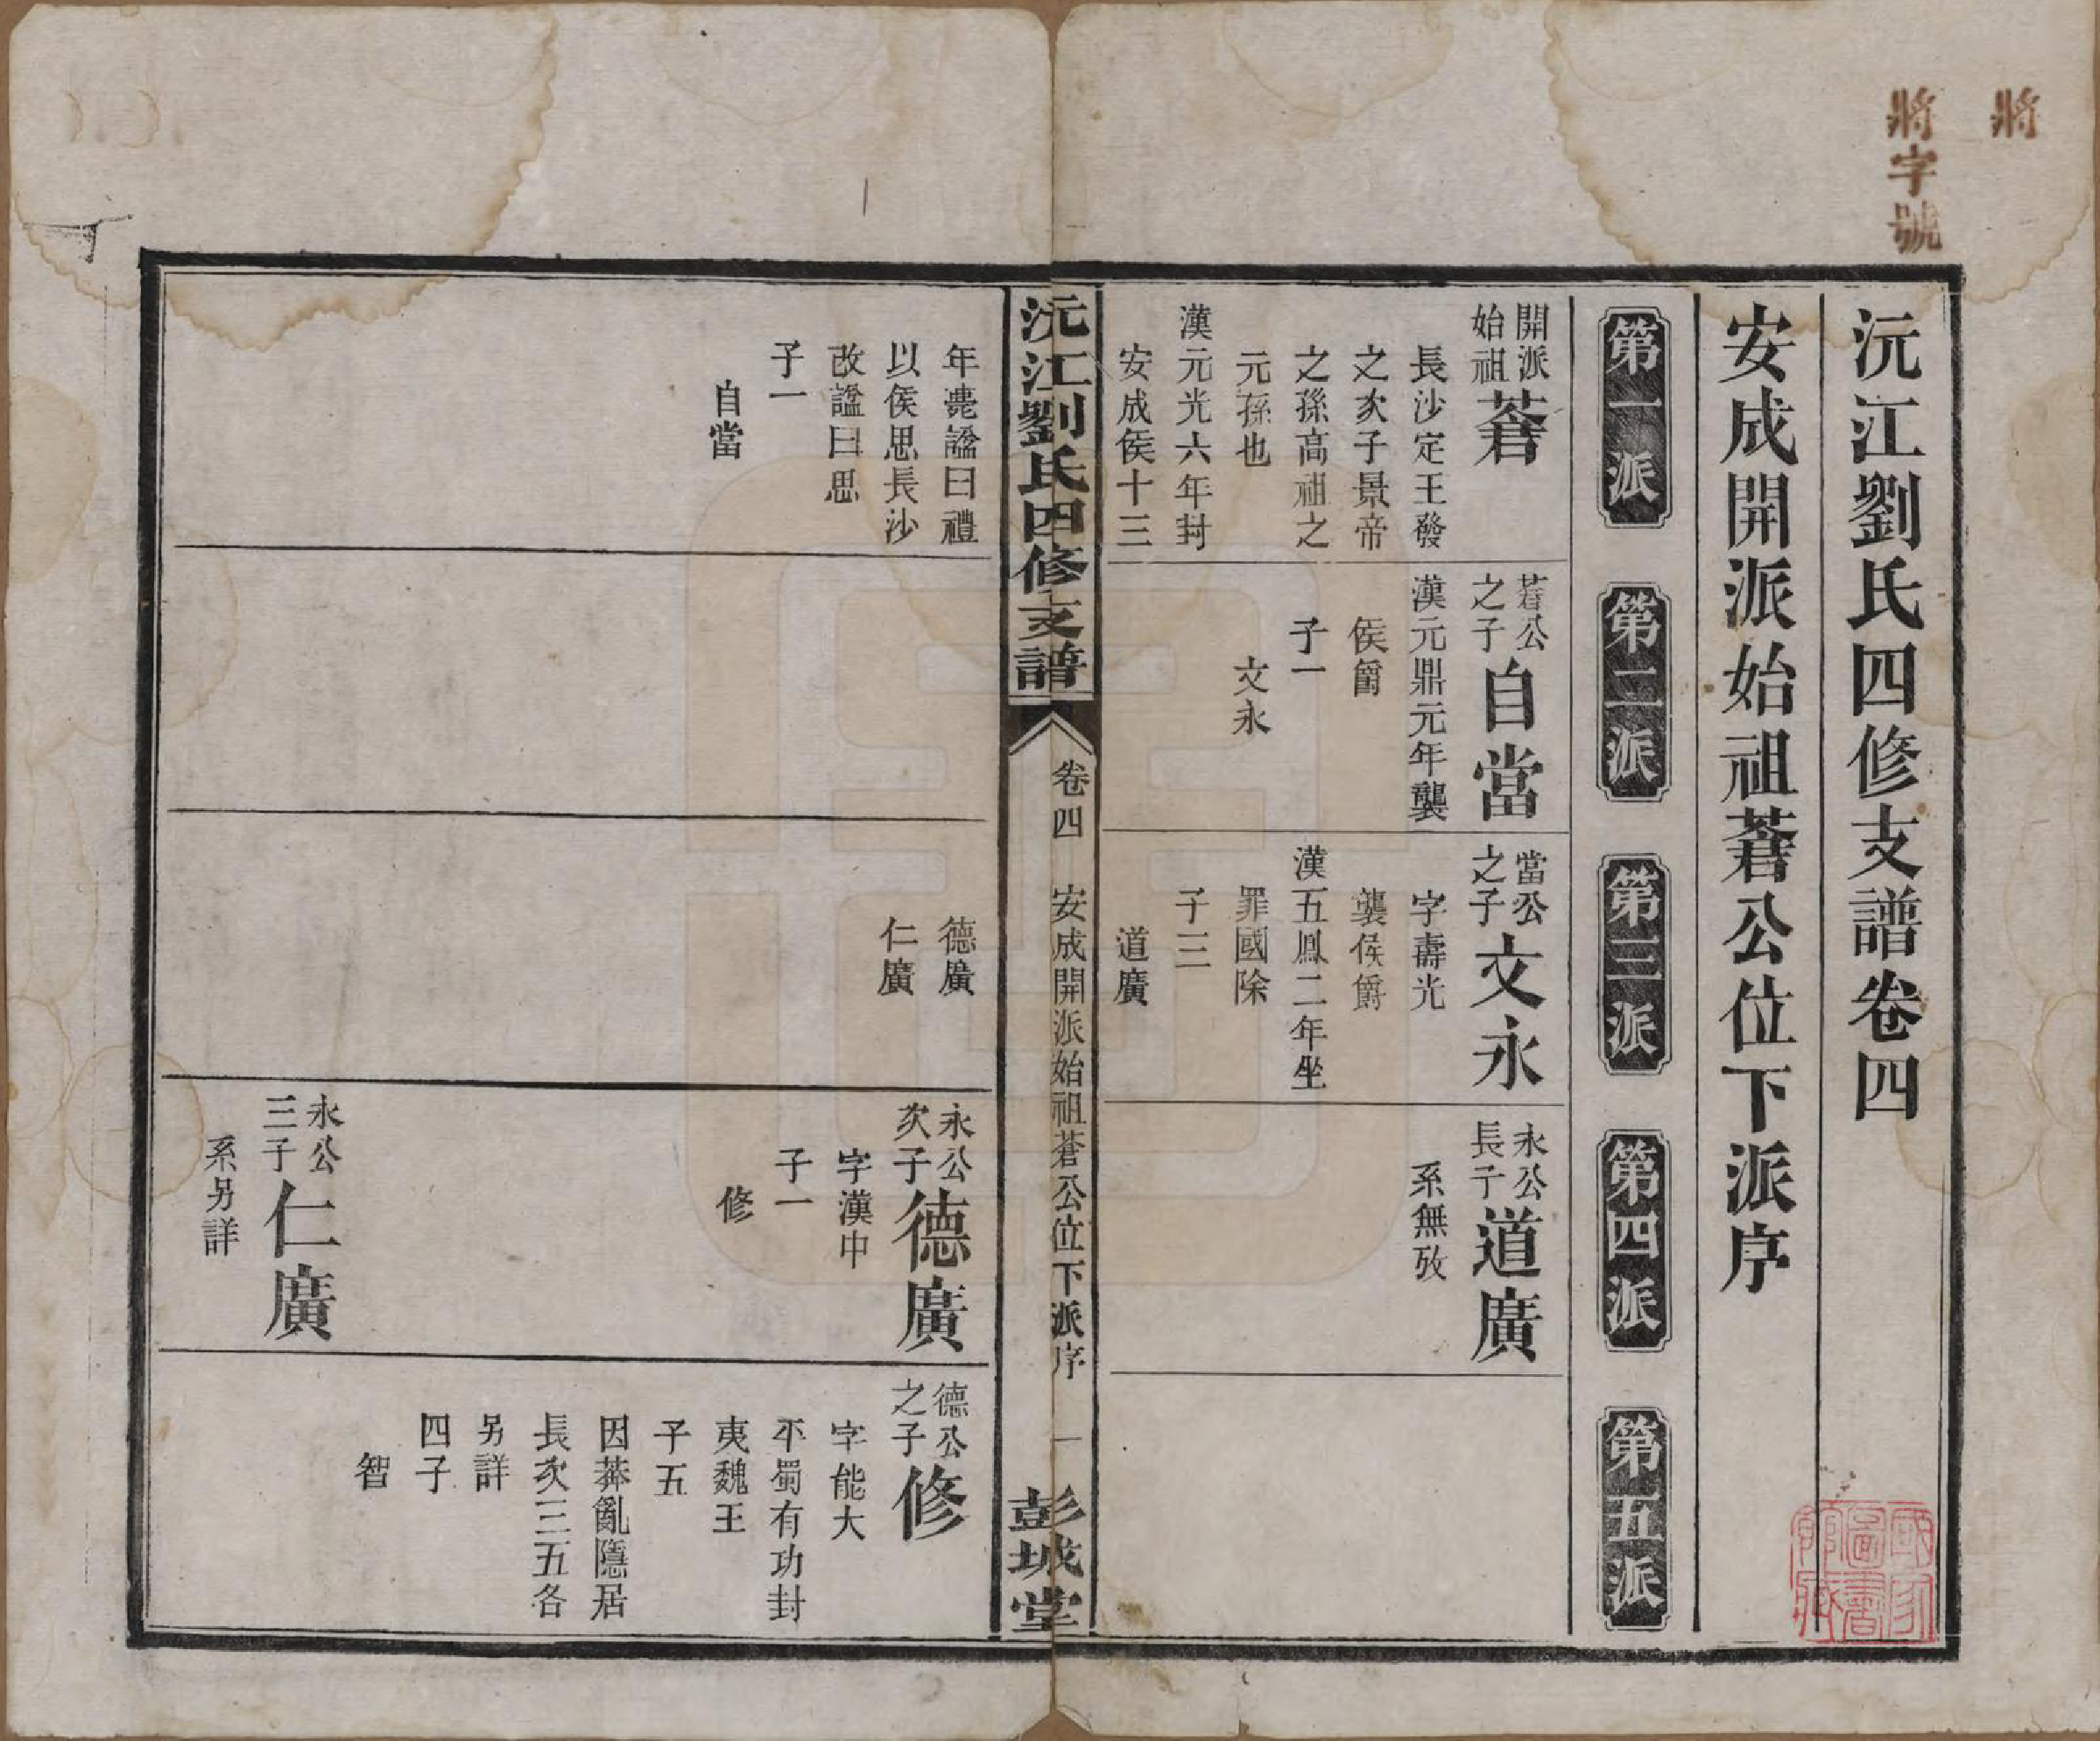 將
將字號
沅江劉氏四修支譜卷四
安成開派始祖蒼公位下派序
第一派
第二派
第三派
第四派
第五派
開派
始祖
蒼
長沙定王發
之次子景帝
之孫高祖之
元孫也
漢元光六年封
安成侯十三
蒼公
之子
自當
漢元鼎元年襲
侯爵
子一
文永
當公
之子
文永
字壽光
襲侯爵
漢五鳳二年坐
罪國除
子三
道廣
永公
長子
道廣
系無攷
沅江劉氏四修支譜
卷四
安成開派始祖蒼公位下派序
一
彭城堂
年薨諡曰禮
以侯思長沙
改諡曰思
子一
自當
德廣
仁廣
永公
次子
德廣
字漢中
子一
修
永公
三子
仁廣
系另詳
德公
之子
修
字能大
平蜀有功封
夷魏王
子五
因莽亂隱居
長次三五各
另詳
四子
智
國家
圖書
館藏